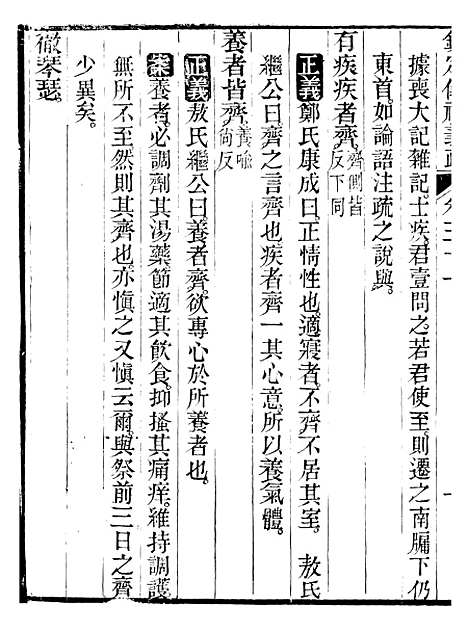 據喪大記雜記士疾君壹問之若君使至則遷之南牖下仍
東首如論語注疏之說與
有疾疾者齊齊側皆反下同
正義鄭氏康成曰正情性也適寢者不齊不居其室 敖氏
繼公曰齊之言齊也疾者齊一其心意所以養氣體
養者皆齊養餘尚反
正義敖氏繼公曰養者齊欲專心於所養者也
案養者必調劑其湯藥節適其飲食抑搔其痛痒維持調護
無所不至然則其齊也亦慎之又慎云爾與祭前三日之齊
少異矣
徹琴瑟